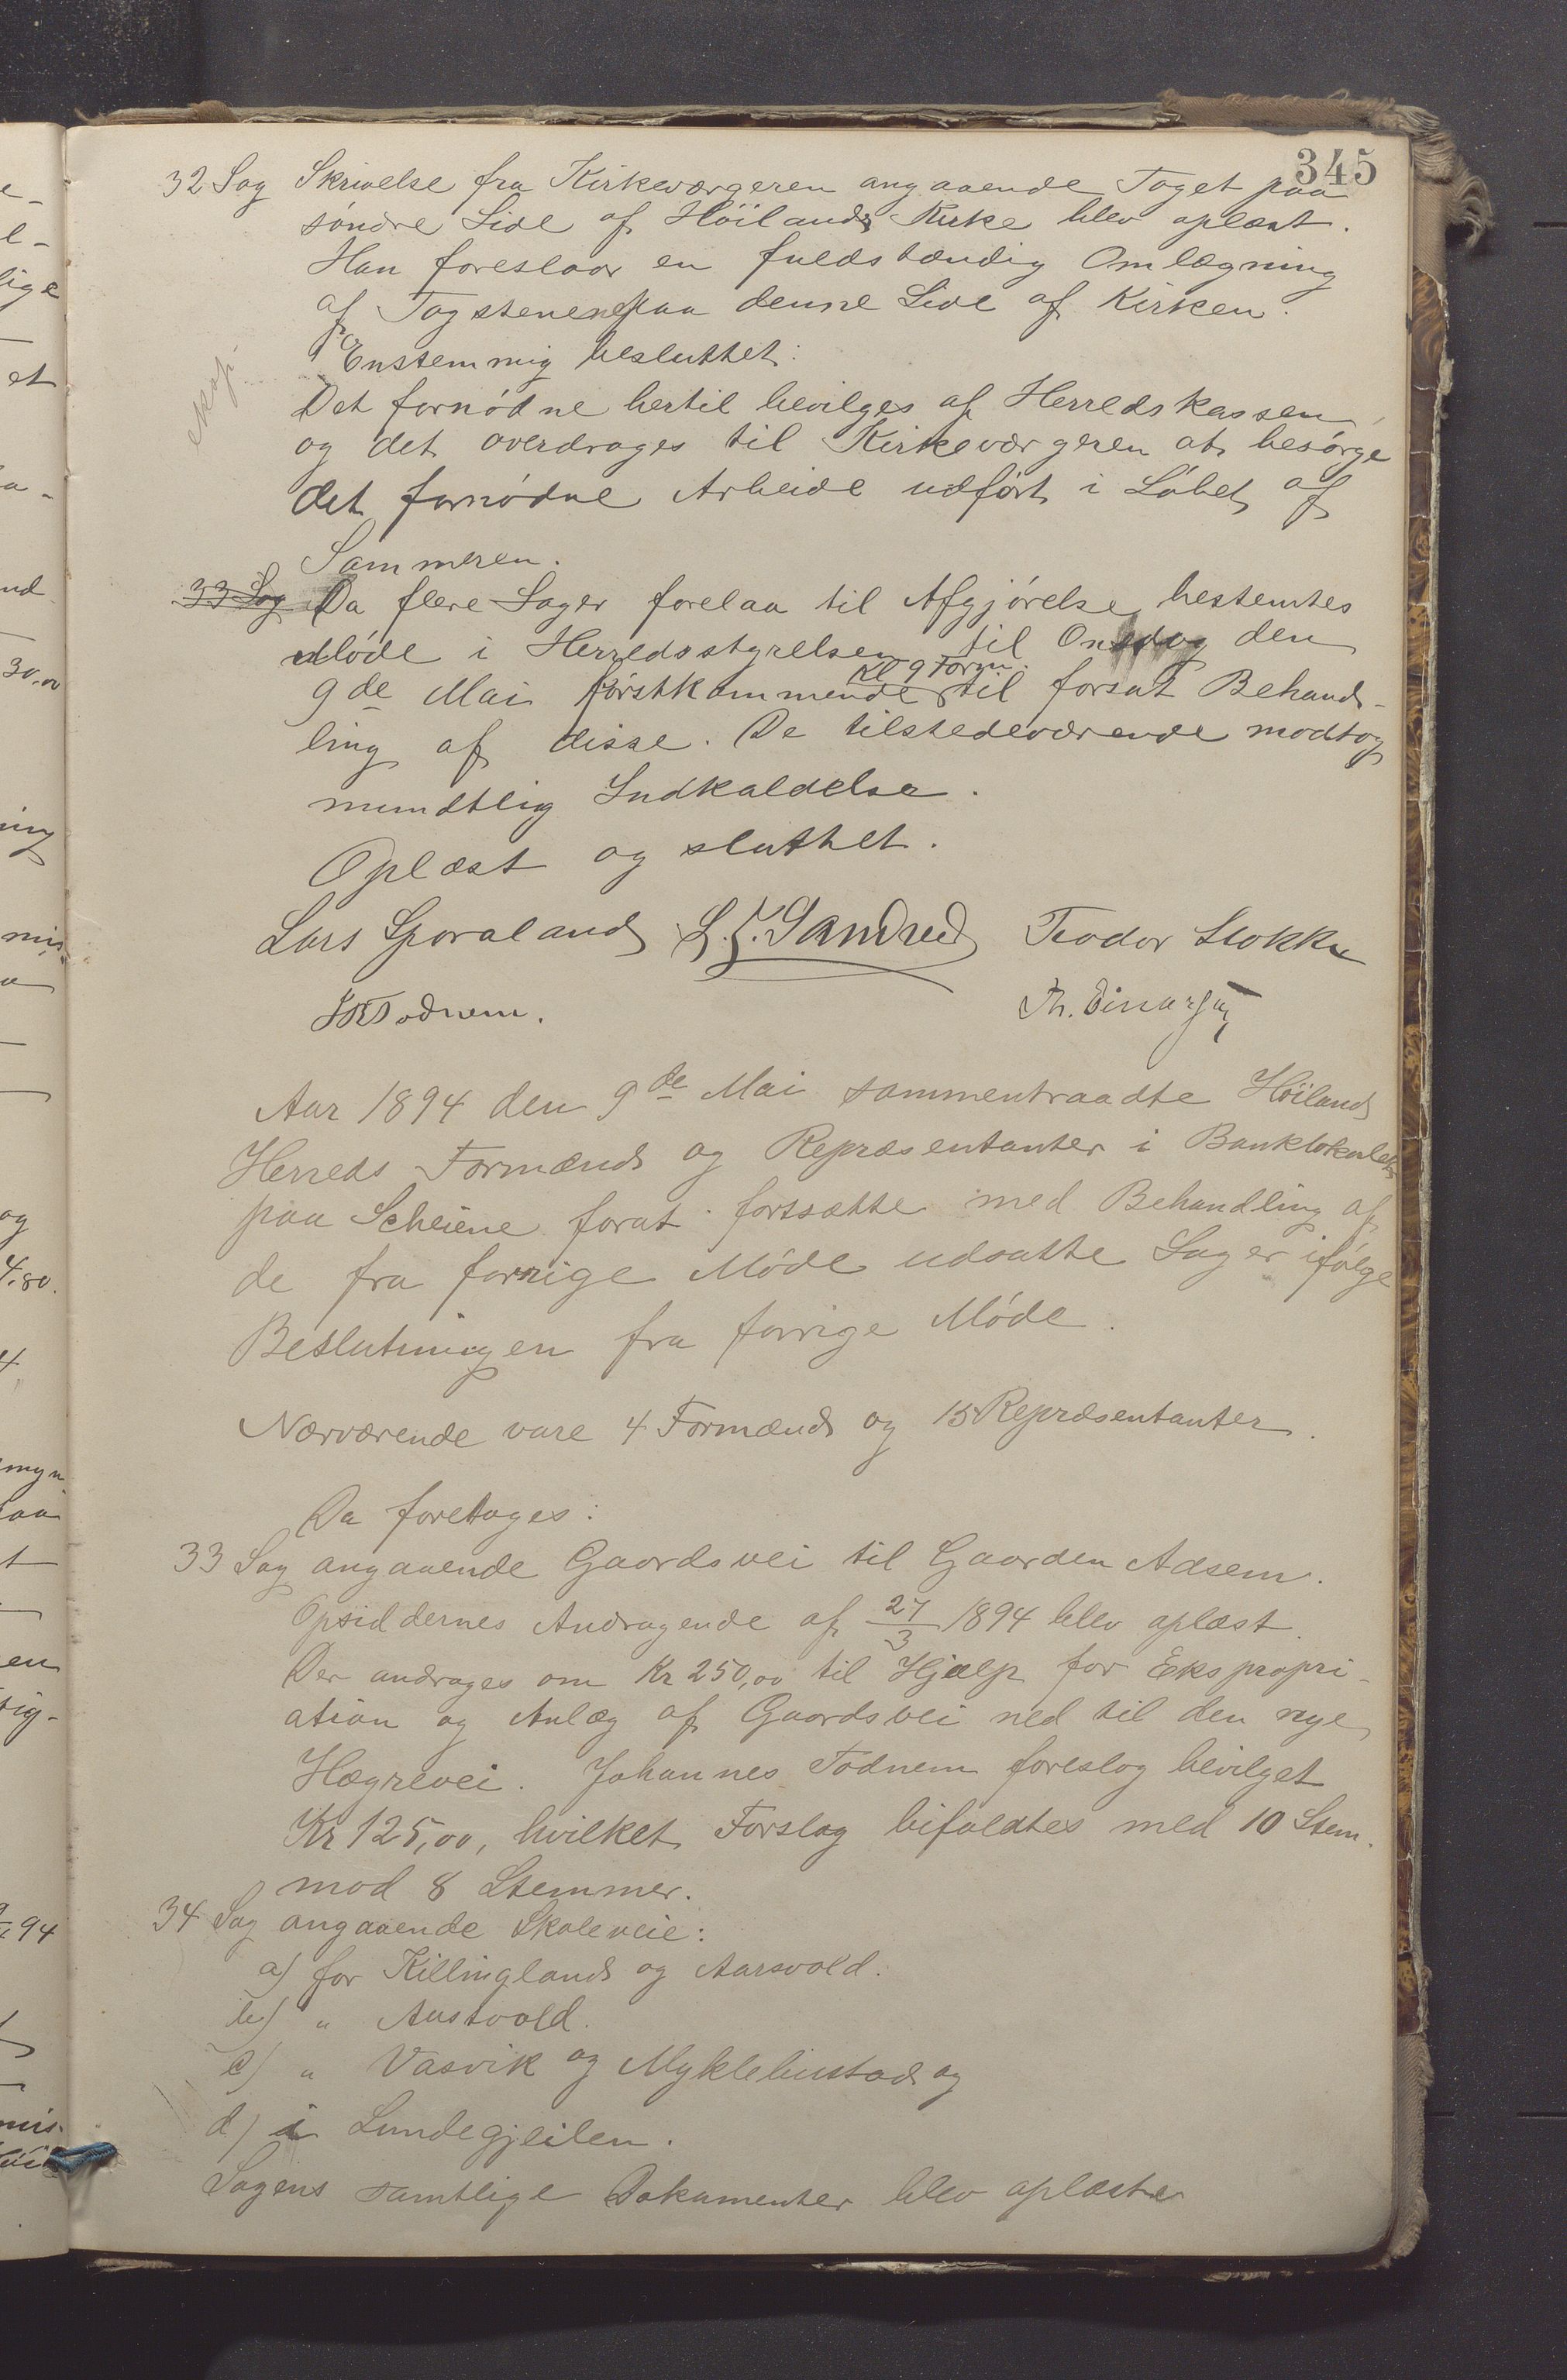 345
32 Sag Skrivelse fra Kirkeværgeren angaaende Taget paa
söndre Side af Höilands Kirke blev oplæst.
Han foreslaar en fuldstændig Omlægning
af Tagstenene paa denne Side af Kirken.
Enstemmig besluttet:
eksp.
Det fornödne hertil bevilges af Herredskassen,
og det overdrages til Kirkeværgeren at besörge
det fornödne Arbeide udfört i Löbet af
Sommeren.
33 Sag Da flere Sager forelaa til Afgjörelse bestemtes
Möde i Herredsstyrelsen til Onsdag den
Kl 9 Form.
9de Mai förstkommende til forsat Behand-
ling af disse. De tilstedeværende modtog
mundtlig Indkaldelse.
Oplæst og sluttet.
Lars Sporaland Teodor Stokke
Todnem.
Aar 1894 den 9de Mai sammentraadte Höilands
Herreds Formænd og Repræsentanter i Banklokalet
paa Scheiene forat fortsætte med Behandling af
de fra forrige Möde udsatte Sager ifölge
Beslutningen fra forrige Möde.
Nærværende vare 4 Formænd og 15 Repræsentanter.
Da foretages:
33 Sag angaaende Gaardsvei til Gaarden Adsem.
Opsiddernes Andragende af 27/3 1894 blev oplæst.
Der andrages om Kr 250,00 til Hjælp for Ekspropri-
ation og Anlæg af Gaardsvei ned til den nye
Høgrevei. Johannes Todnem foreslog bevilget
Kr 125,00, hvilket Forslag bifaldtes med 10 Stem.
mod 8 Stemmer.
34 Sag angaaende Skoleveie:
a) for Killingland og Aarsvold.
b) " Austvold.
c) " Vasvik og Myklebustad og
d) i Lundegjeilen.
Sagens samtlige Dokumenter blev oplæste